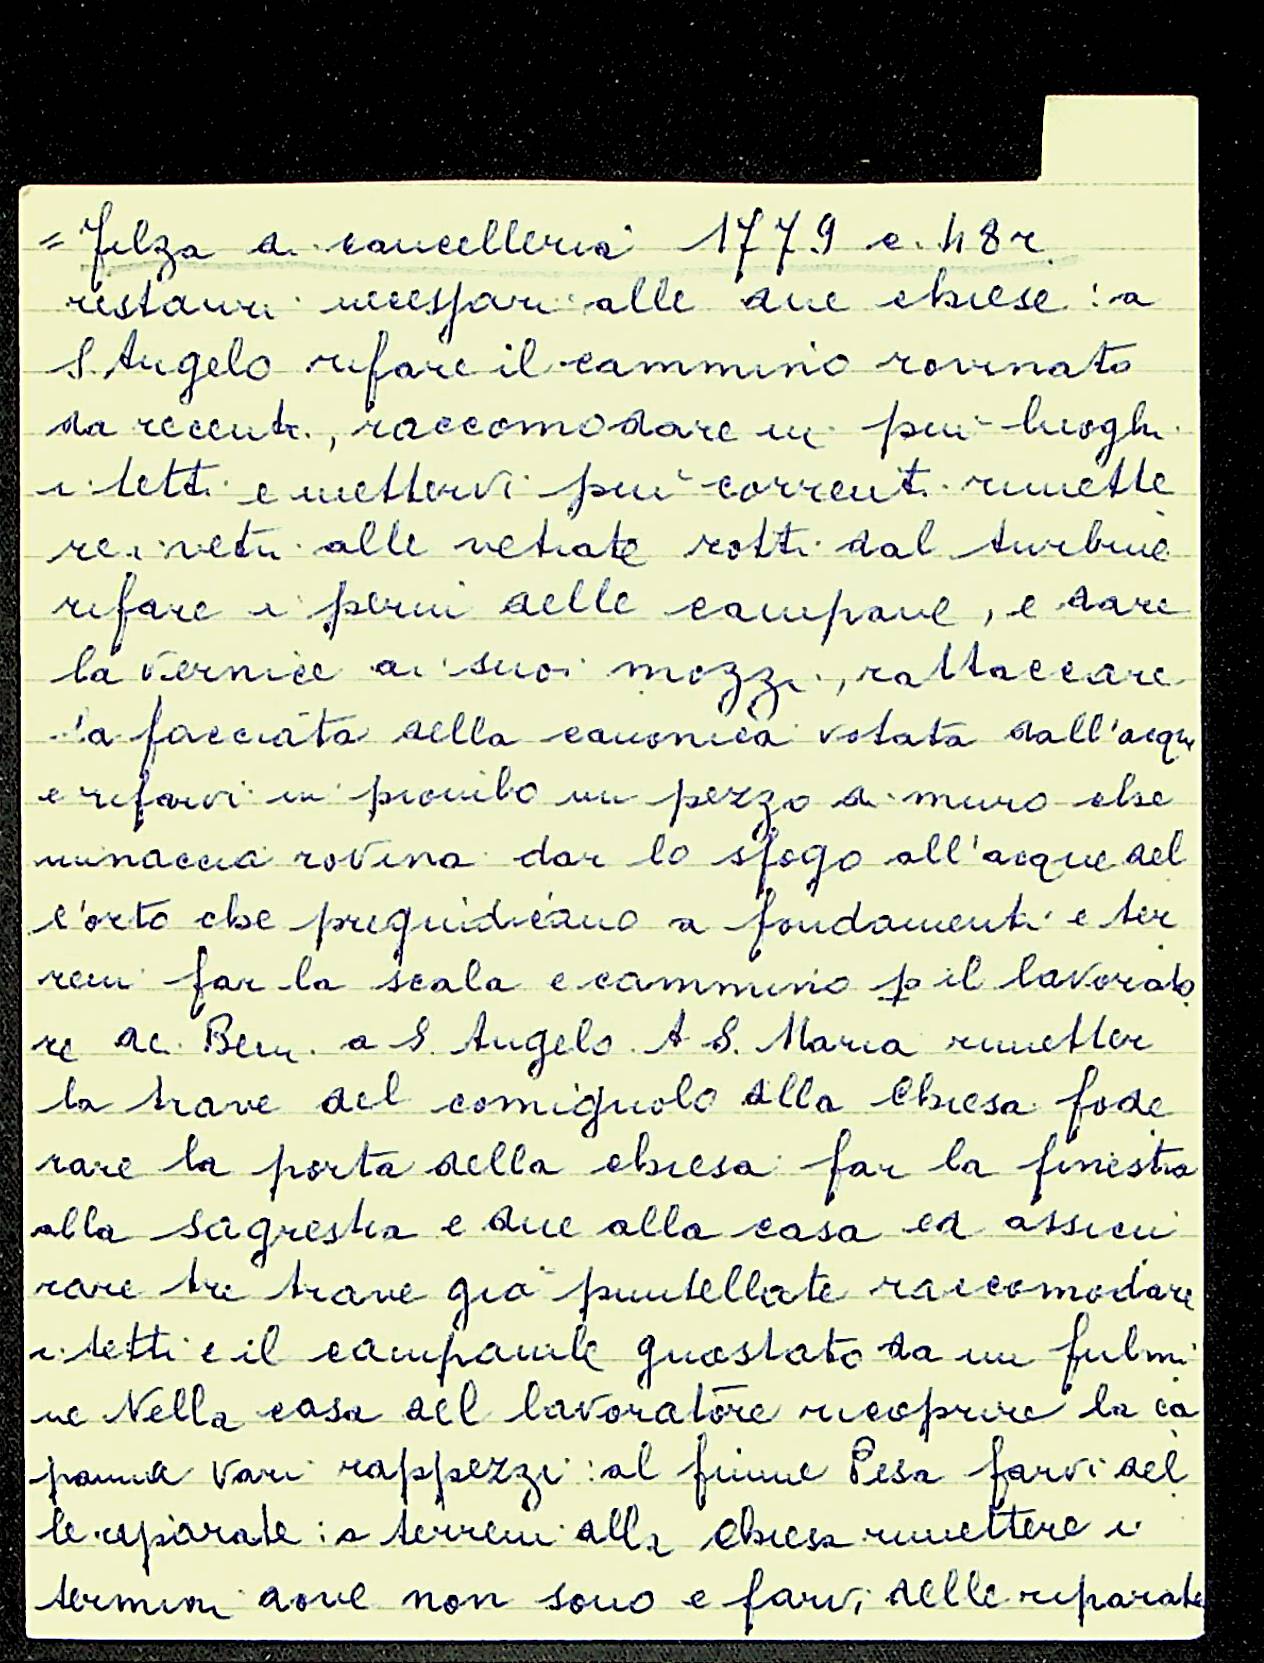 = Filza di cancelleria 1779 c. 48r
restauri necessari alle due chiese: a
S. Angelo rifare il cammino rovinato
da recente, raccomodare in piu luoghi
i tetti e mettervi piu correnti rimette
re i vetri alle vetrate rotti dal turbine
rifare i perni delle campane, e dare
la vernice ai suoi mozzi, rattaccare
la facciata della canonica votata dall'acque
e rifarvi in piombo un pezzo di muro che
minaccia rovina dar lo sfogo all'acque del
l'orto che pregiudicano a fondamenti e ter
reni far la scala e cammino p il lavorato
re de Beni a S. Angelo. A S. Maria rimetter
la trave del comignolo alla Chiesa fode
rare la porta della chiesa far la finestra
alla sagrestia e due alla casa ed assicu
rare tre trave già puntellate raccomodare
i tetti e il campanile guastato da un fulmi
ne Nella casa del lavoratore ricoprire la ca
panna vari rappezzi: al fiume Pesa farvi del
le riparate: a terreni alla chiesa rimettere i
termini dove non sono e farvi delle riparate